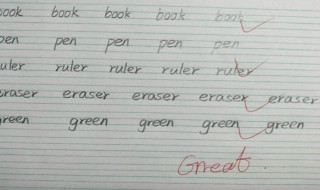 book book book book book
pen pen pen pen pen
ruler ruler ruler ruler ruler
eraser eraser eraser eraser eraser
green green green green green
Great.